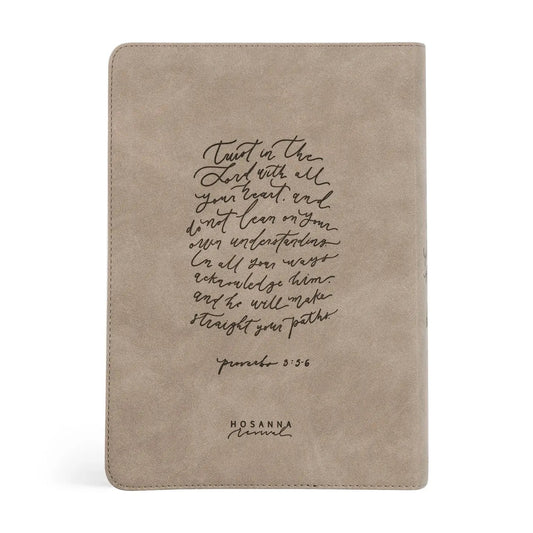 Trust in the
Lord with all
your heart. and
do not lean on your
own understanding
In all your ways
acknowledge him.
and he will make
straight your paths.
proverbs 3:5-6
HOSANNA
revival